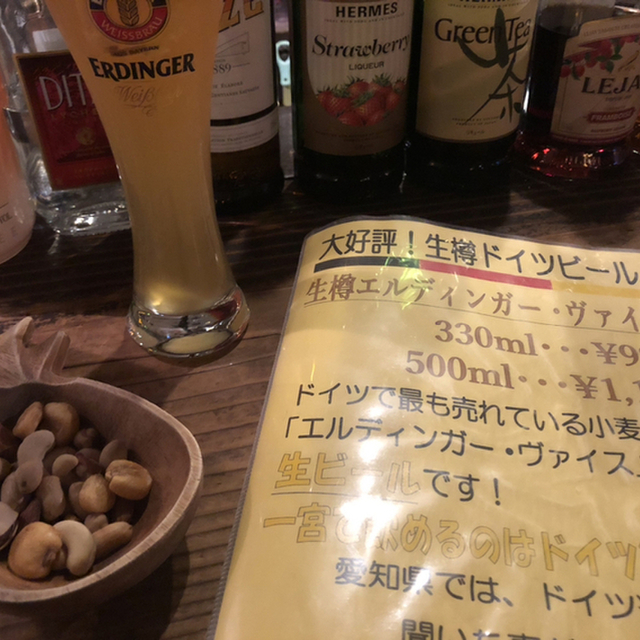 ERDINGER
Weiß
HERMES
Strawberry
LIQUEUR
Green Tea
茶
LEJA
大好評！生樽ドイツビール
生樽エルディンガー・ヴァイ
330ml・・・¥9
500ml・・・¥1,
ドイツで最も売れている小麦
「エルディンガー・ヴァイス
生ビールです！
一宮で飲めるのはドイツ
愛知県では、ドイツ
聞いた事